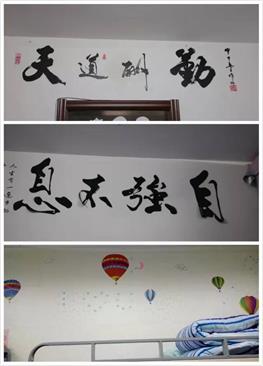 天道酬勤
自強不息